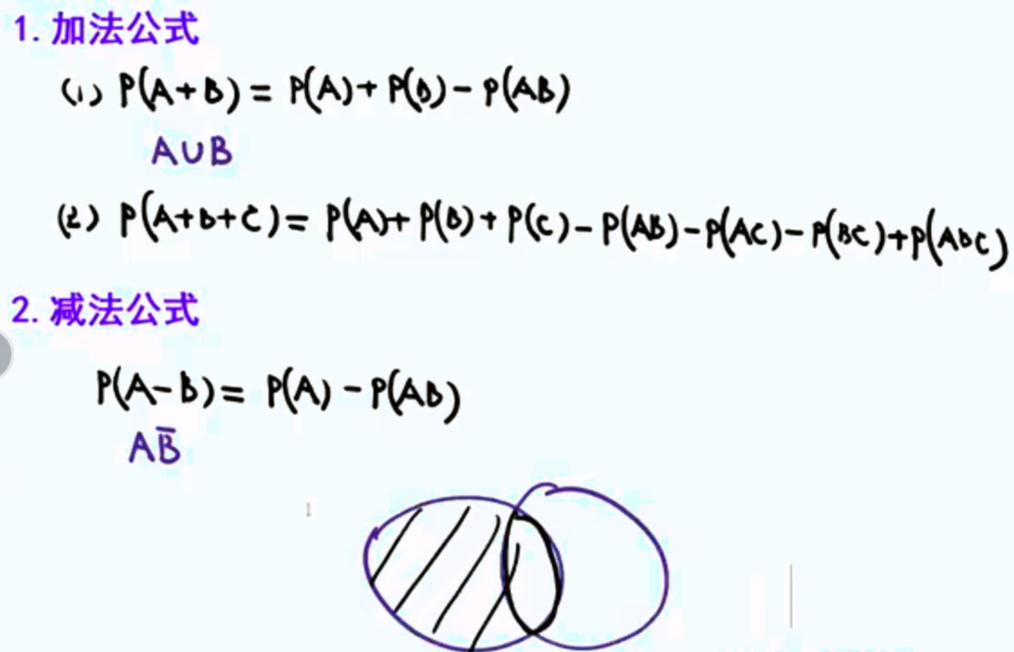 1. 加法公式
(1) P(A+B) = P(A)+ P(B) - P(AB)
A∪B
(2) P(A+B+C) = P(A)+ P(B) + P(C) - P(AB) - P(AC) - P(BC) + P(ABC)
2. 减法公式
P(A-B) = P(A) - P(AB)
AB̅